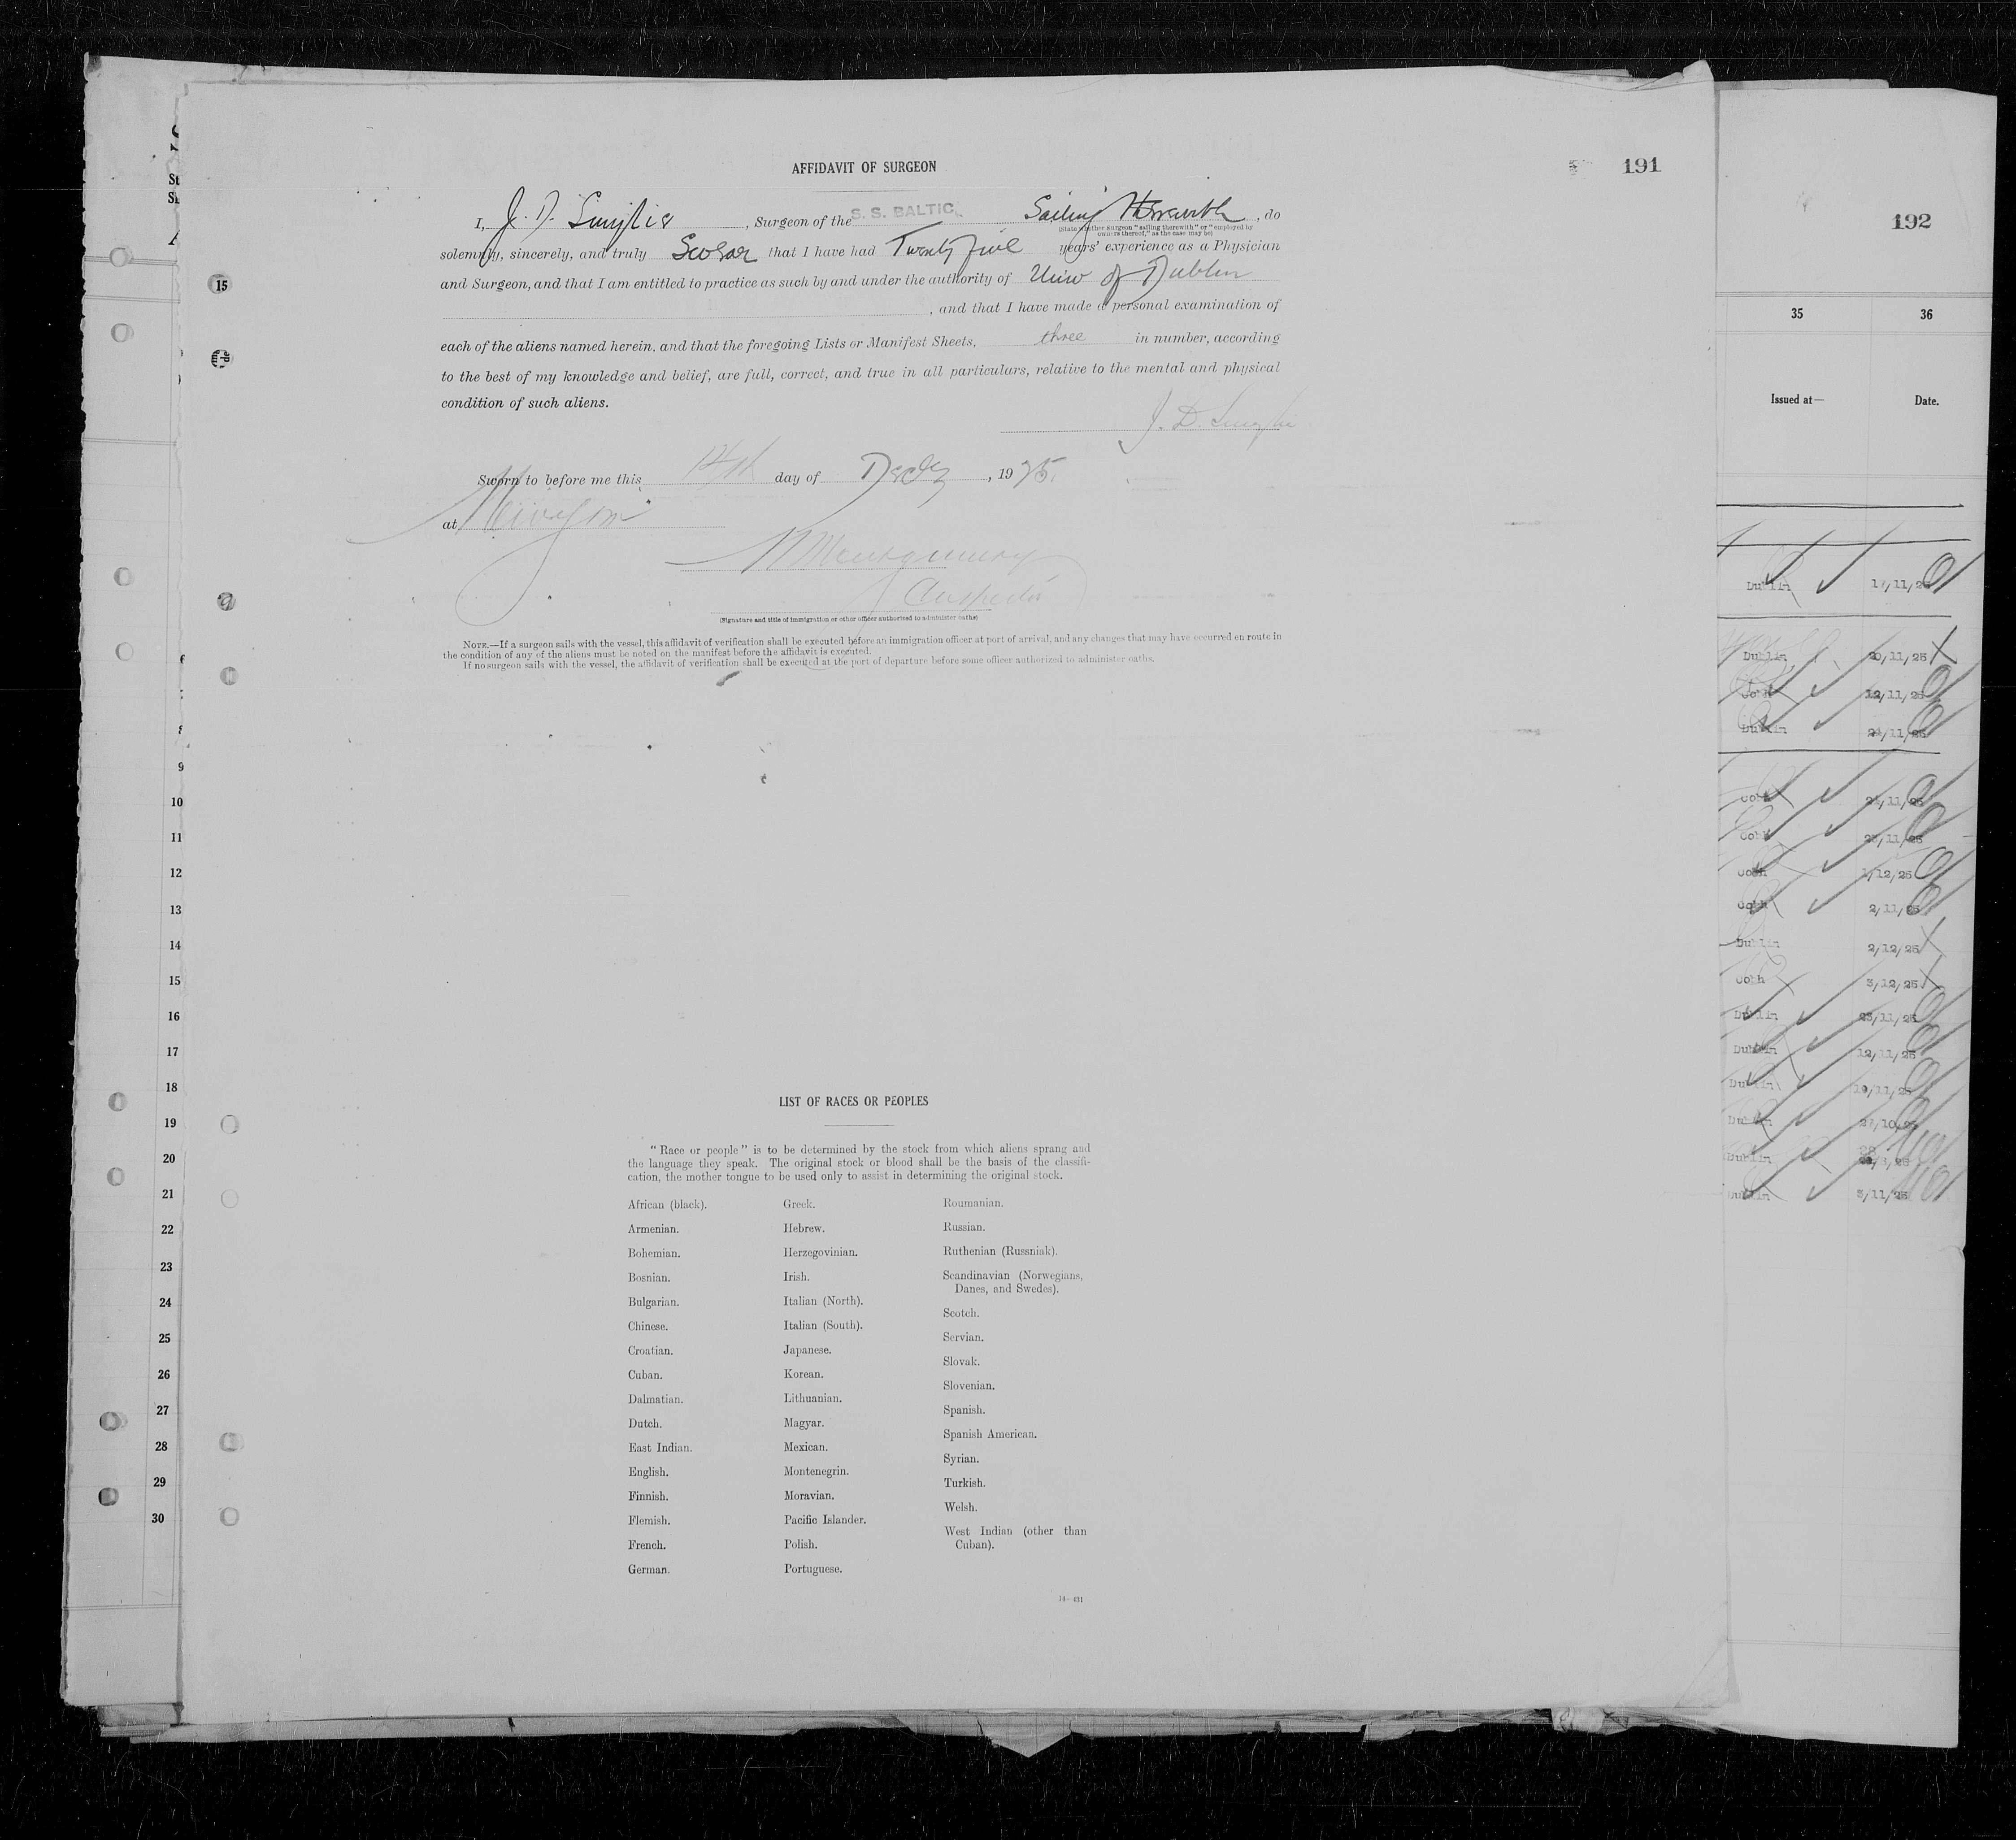 AFFIDAVIT OF SURGEON
191
I, J. D. , Surgeon of the S. S. BALTIC, Sailing Therewith, do
(State whether Surgeon "sailing therewith" or "employed by
owners thereof," as the case may be)
solemnly, sincerely, and truly Swear that I have had Twenty five years' experience as a Physician
and Surgeon, and that I am entitled to practice as such by and under the authority of Univ of Dublin
, and that I have made a personal examination of
each of the aliens named herein, and that the foregoing Lists or Manifest Sheets, three in number, according
to the best of my knowledge and belief, are full, correct, and true in all particulars, relative to the mental and physical
condition of such aliens.
J. D.
Sworn to before me this day of , 1925.
at
Montgomery
Inspector
(Signature and title of immigration or other officer authorized to administer oaths)
NOTE.—If a surgeon sails with the vessel, this affidavit of verification shall be executed before an immigration officer at port of arrival, and any changes that may have occurred en route in
the condition of any of the aliens must be noted on the manifest before the affidavit is executed.
If no surgeon sails with the vessel, the affidavit of verification shall be executed at the port of departure before some officer authorized to administer oaths.
LIST OF RACES OR PEOPLES
"Race or people" is to be determined by the stock from which aliens sprang and
the language they speak. The original stock or blood shall be the basis of the classifi-
cation, the mother tongue to be used only to assist in determining the original stock.
African (black).
Armenian.
Bohemian.
Bosnian.
Bulgarian.
Chinese.
Croatian.
Cuban.
Dalmatian.
Dutch.
East Indian.
English.
Finnish.
Flemish.
French.
German.
Greek.
Hebrew.
Herzegovinian.
Irish.
Italian (North).
Italian (South).
Japanese.
Korean.
Lithuanian.
Magyar.
Mexican.
Montenegrin.
Moravian.
Pacific Islander.
Polish.
Portuguese.
Roumanian.
Russian.
Ruthenian (Russniak).
Scandinavian (Norwegians,
Danes, and Swedes).
Scotch.
Servian.
Slovak.
Slovenian.
Spanish.
Spanish American.
Syrian.
Turkish.
Welsh.
West Indian (other than
Cuban).
15
9
10
11
12
13
14
15
16
17
18
19
20
21
22
23
24
25
26
27
28
29
30
192
35 36
Issued at— Date.
Dublin 17/11/25
Dublin 20/11/25
Cobh 12/11/25
Dublin 24/11/25
Cobh 24/11/25
Cobh
Cobh 1/12/25
Cobh 2/11/25
Dublin 2/12/25
Cobh 3/12/25
Dublin 23/11/25
Dublin 12/11/25
Dublin 19/11/25
Dublin 27/10/25
Dublin
Dublin 3/11/25